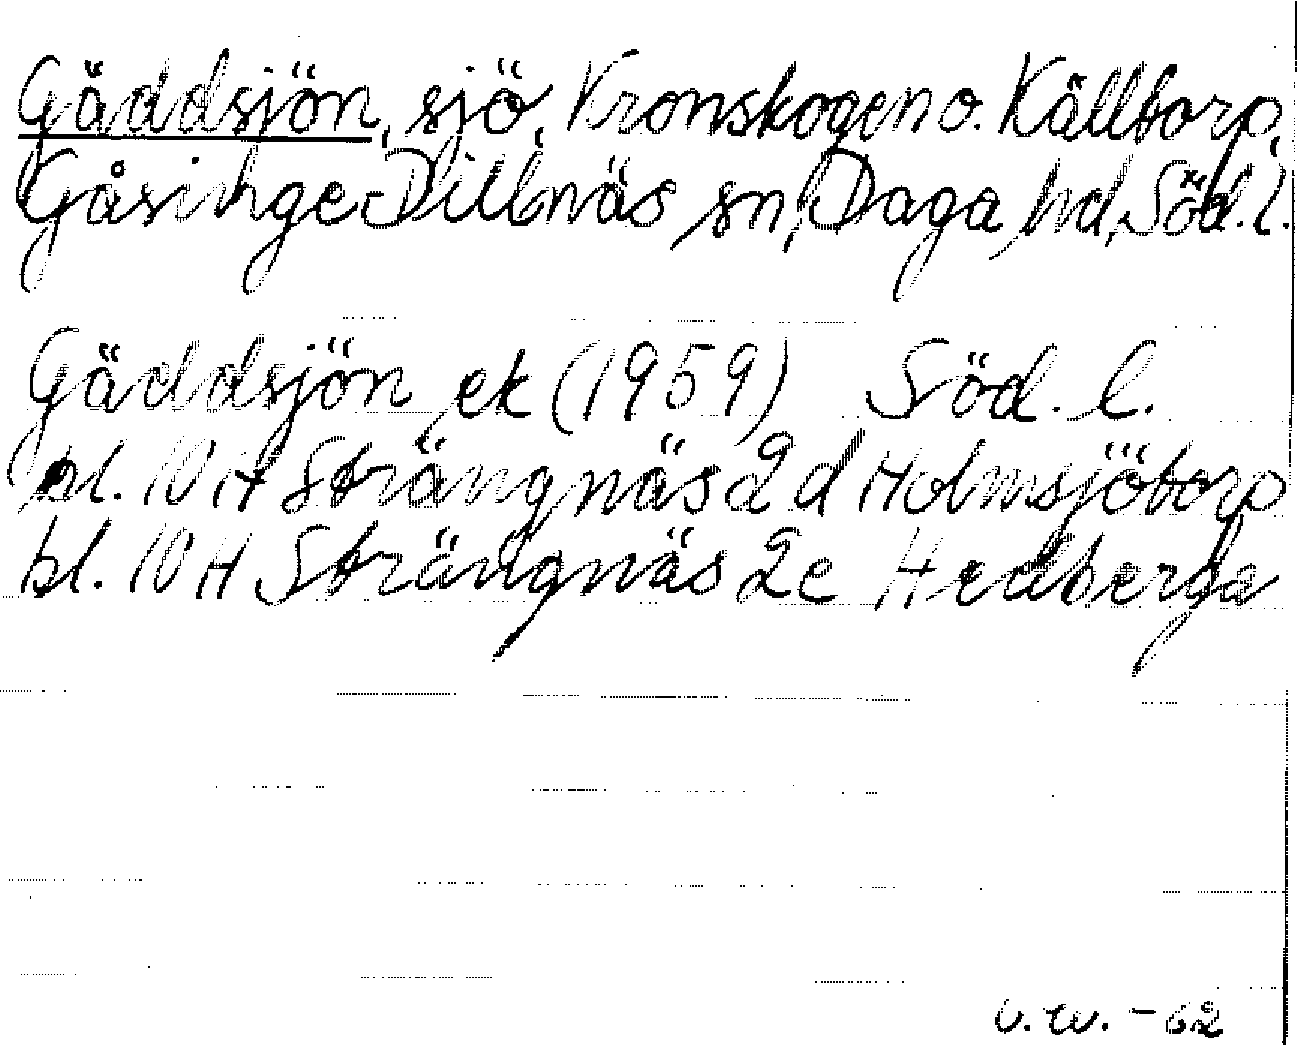 Gäddsjön, sjö, Kronskogen o. Källtorp,
Gåsinge Dillnäs sn, Daga hd, Söd. l.
Gäddsjön ek (1959) Söd. l.
bl. 10 H Strängnäs 2 d Holmsjötorp
bl. 10 H Strängnäs 2 e Hedberga
v.w. - 62